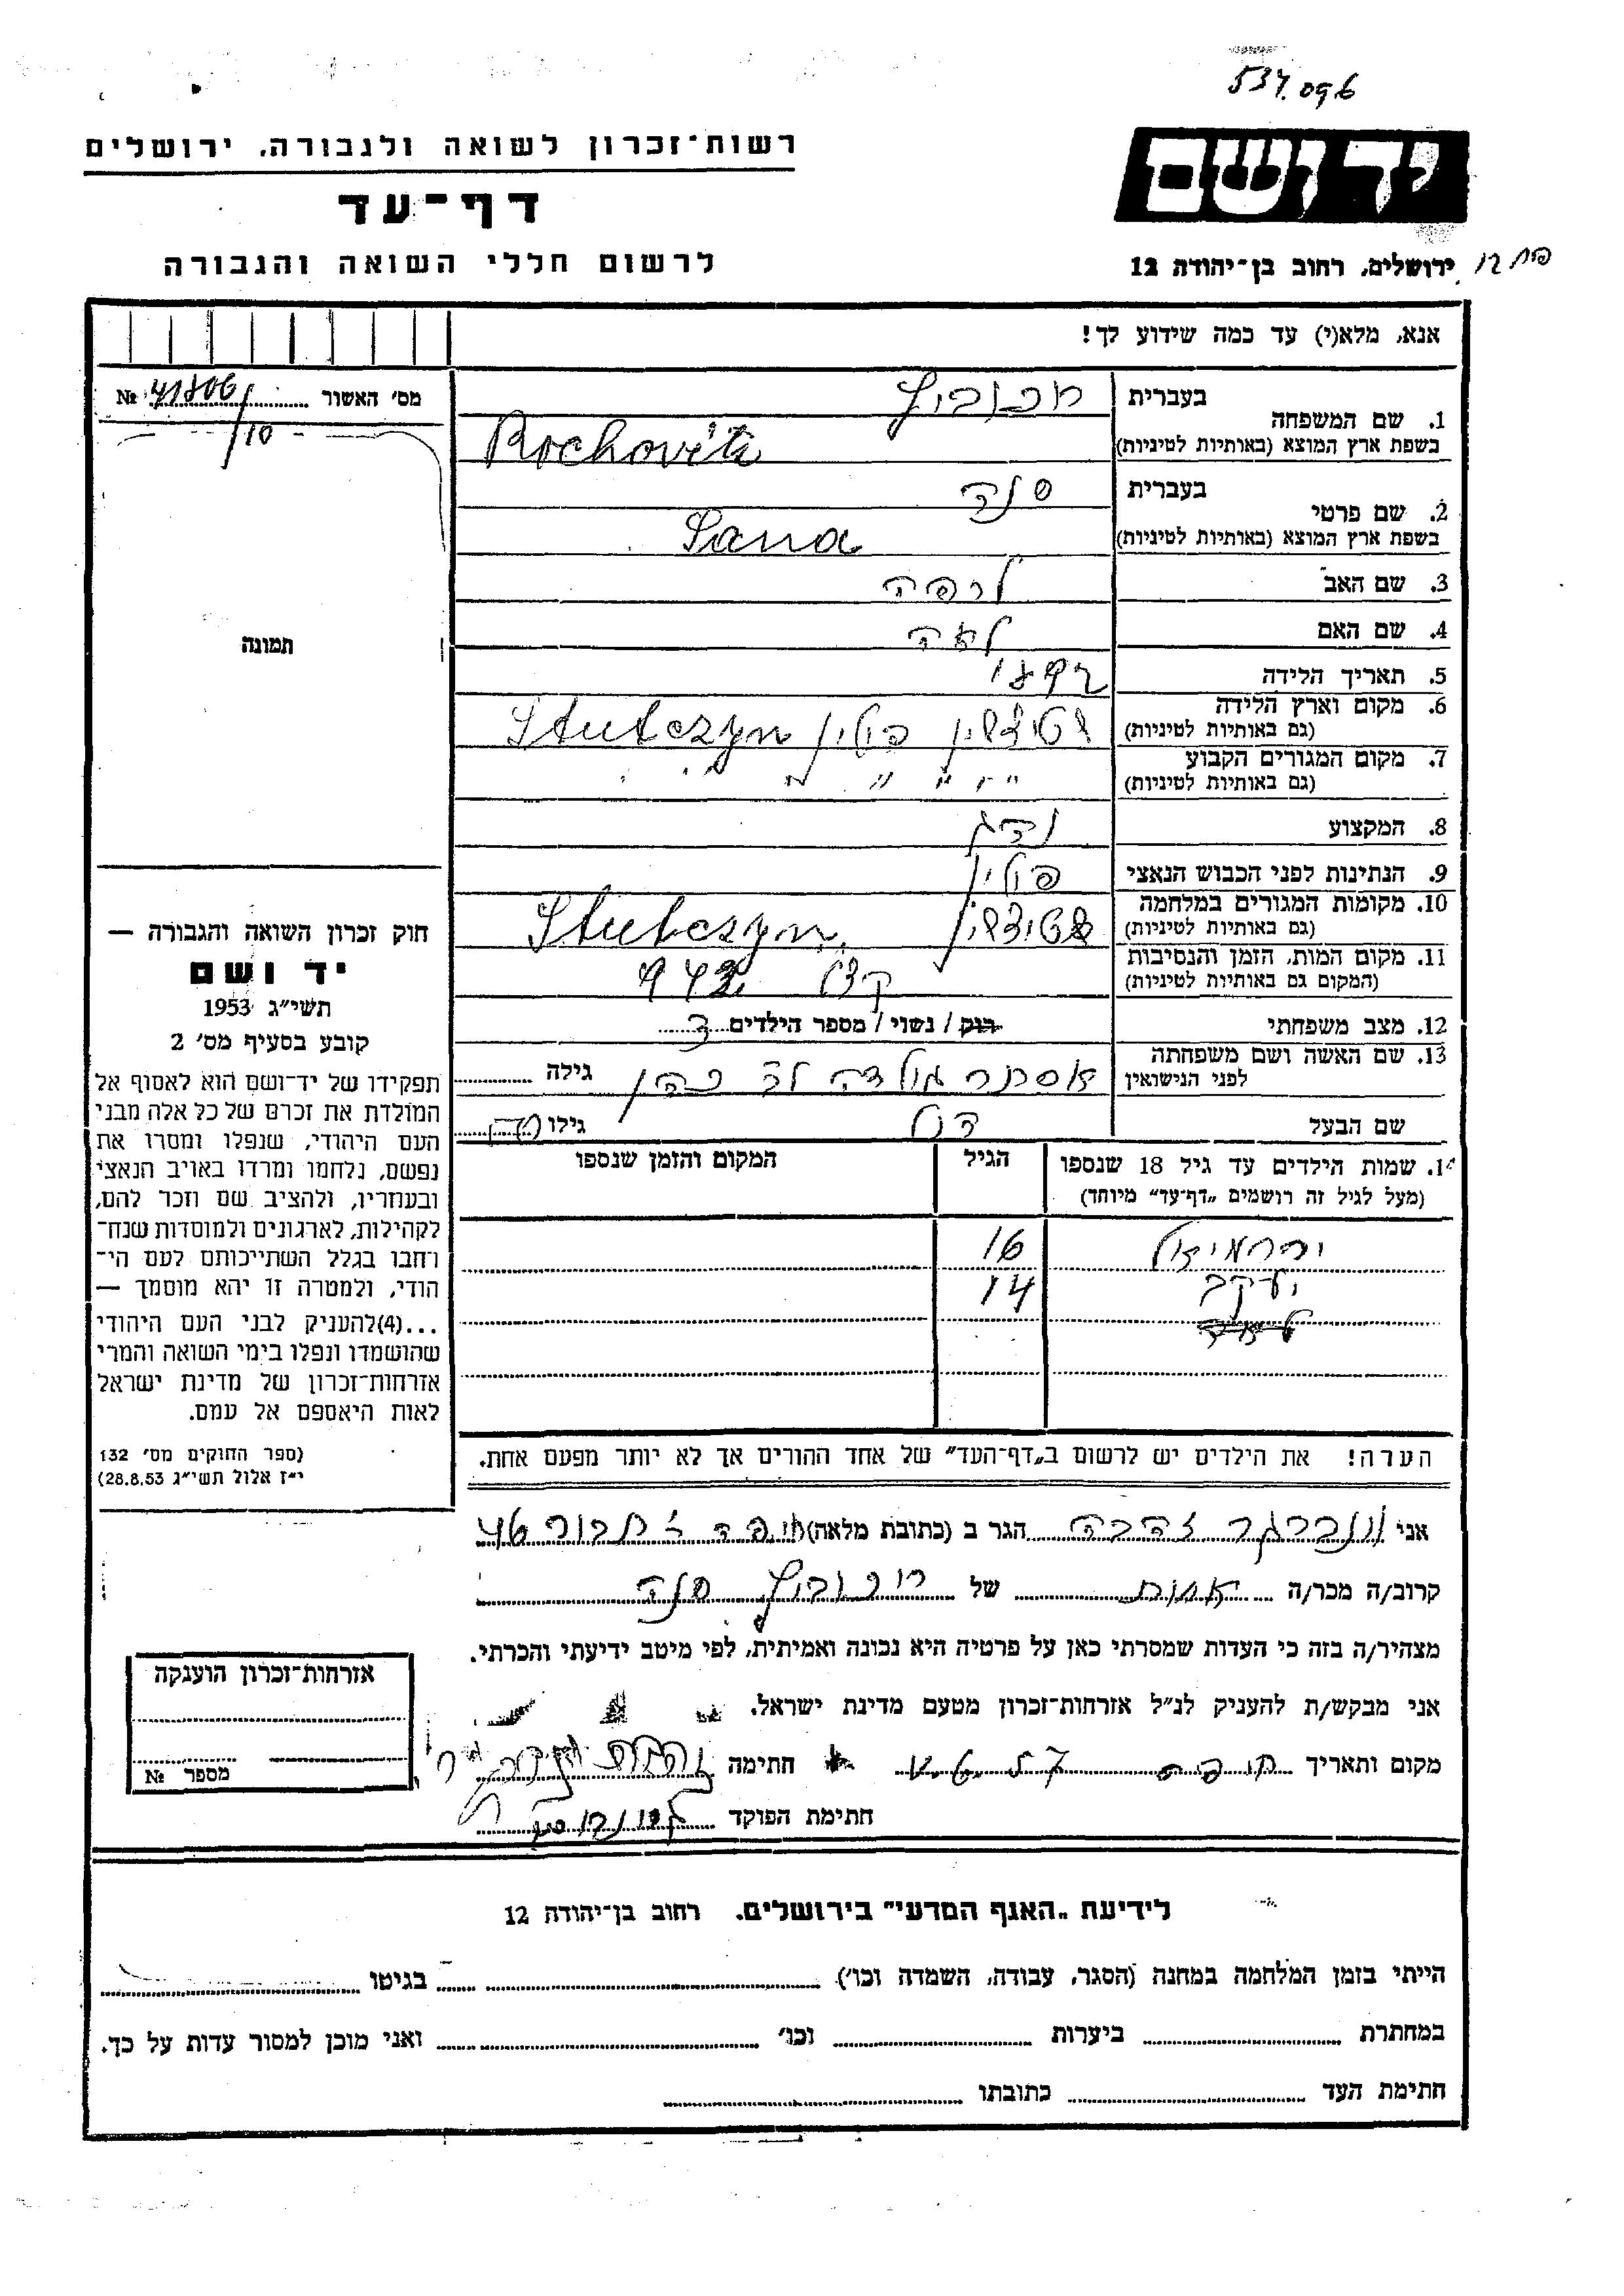 534.096
רשות־זכרון לשואה ולגבורה, ירושלים
ידושם
דף־עד
לרשום חללי השואה והגבורה
ירושלים, רחוב בן־יהודה 12
אנא, מלא(י) עד כמה שידוע לך!
מס׳ האשור № 41806/10
1. שם המשפחה
בעברית
בשפת ארץ המוצא (באותיות לטיניות) Rochovitz
2. שם פרטי
בעברית סנה
בשפת ארץ המוצא (באותיות לטיניות) Sana
3. שם האב
4. שם האם לאה
5. תאריך הלידה
6. מקום וארץ הלידה
(גם באותיות לטיניות) פולין Stutczyn
7. מקום המגורים הקבוע
(גם באותיות לטיניות) " " " "
8. המקצוע
9. הנתינות לפני הכבוש הנאצי פולין
10. מקומות המגורים במלחמה
(גם באותיות לטיניות) Stutczyn
11. מקום המות, הזמן והנסיבות
(המקום גם באותיות לטיניות)
12. מצב משפחתי רוק / נשוי / מספר הילדים 3
13. שם האשה ושם משפחתה
לפני הנישואין אסתר גולדה כהן גילה
שם הבעל גילו
14. שמות הילדים עד גיל 18 שנספו
(מעל לגיל זה רושמים „דף־עד״ מיוחד)
הגיל
המקום והזמן שנספו
ירחמיאל 16
יעקב 14
הערה! את הילדים יש לרשום ב„דף־העד״ של אחד ההורים אך לא יותר מפעם אחת.
תמונה
חוק זכרון השואה והגבורה —
יד ושם
תשי״ג 1953
קובע בסעיף מס׳ 2
תפקידו של יד־ושם הוא לאסוף אל
המולדת את זכרם של כל אלה מבני
העם היהודי, שנפלו ומסרו את
נפשם, נלחמו ומרדו באויב הנאצי
ובעוזריו, ולהציב שם וזכר להם,
לקהילות, לארגונים ולמוסדות שנח־
רחבו בגלל השתייכותם לעם הי־
הודי, ולמטרה זו יהא מוסמך —
...(4)להעניק לבני העם היהודי
שהושמדו ונפלו בימי השואה והמרי
אזרחות־זכרון של מדינת ישראל
לאות היאספם אל עמם.
(ספר החוקים מס׳ 132
י״ז אלול תשי״ג 28.8.53)
אני זהבה הגר ב (כתובת מלאה) חיפה
קרוב/ה מכר/ה אחות של סנה
מצהיר/ה בזה כי העדות שמסרתי כאן על פרטיה היא נכונה ואמיתית, לפי מיטב ידיעתי והכרתי.
אני מבקש/ת להעניק לנ״ל אזרחות־זכרון מטעם מדינת ישראל.
מקום ותאריך חיפה חתימה
חתימת הפוקד
אזרחות־זכרון הוענקה
מספר №
לידיעת „האגף המדעי״ בירושלים. רחוב בן־יהודה 12
הייתי בזמן המלחמה במחנה (הסגר, עבודה, השמדה וכו׳) בגיטו
במחתרת ביערות וכו׳ ואני מוכן למסור עדות על כך.
חתימת העד כתובתו